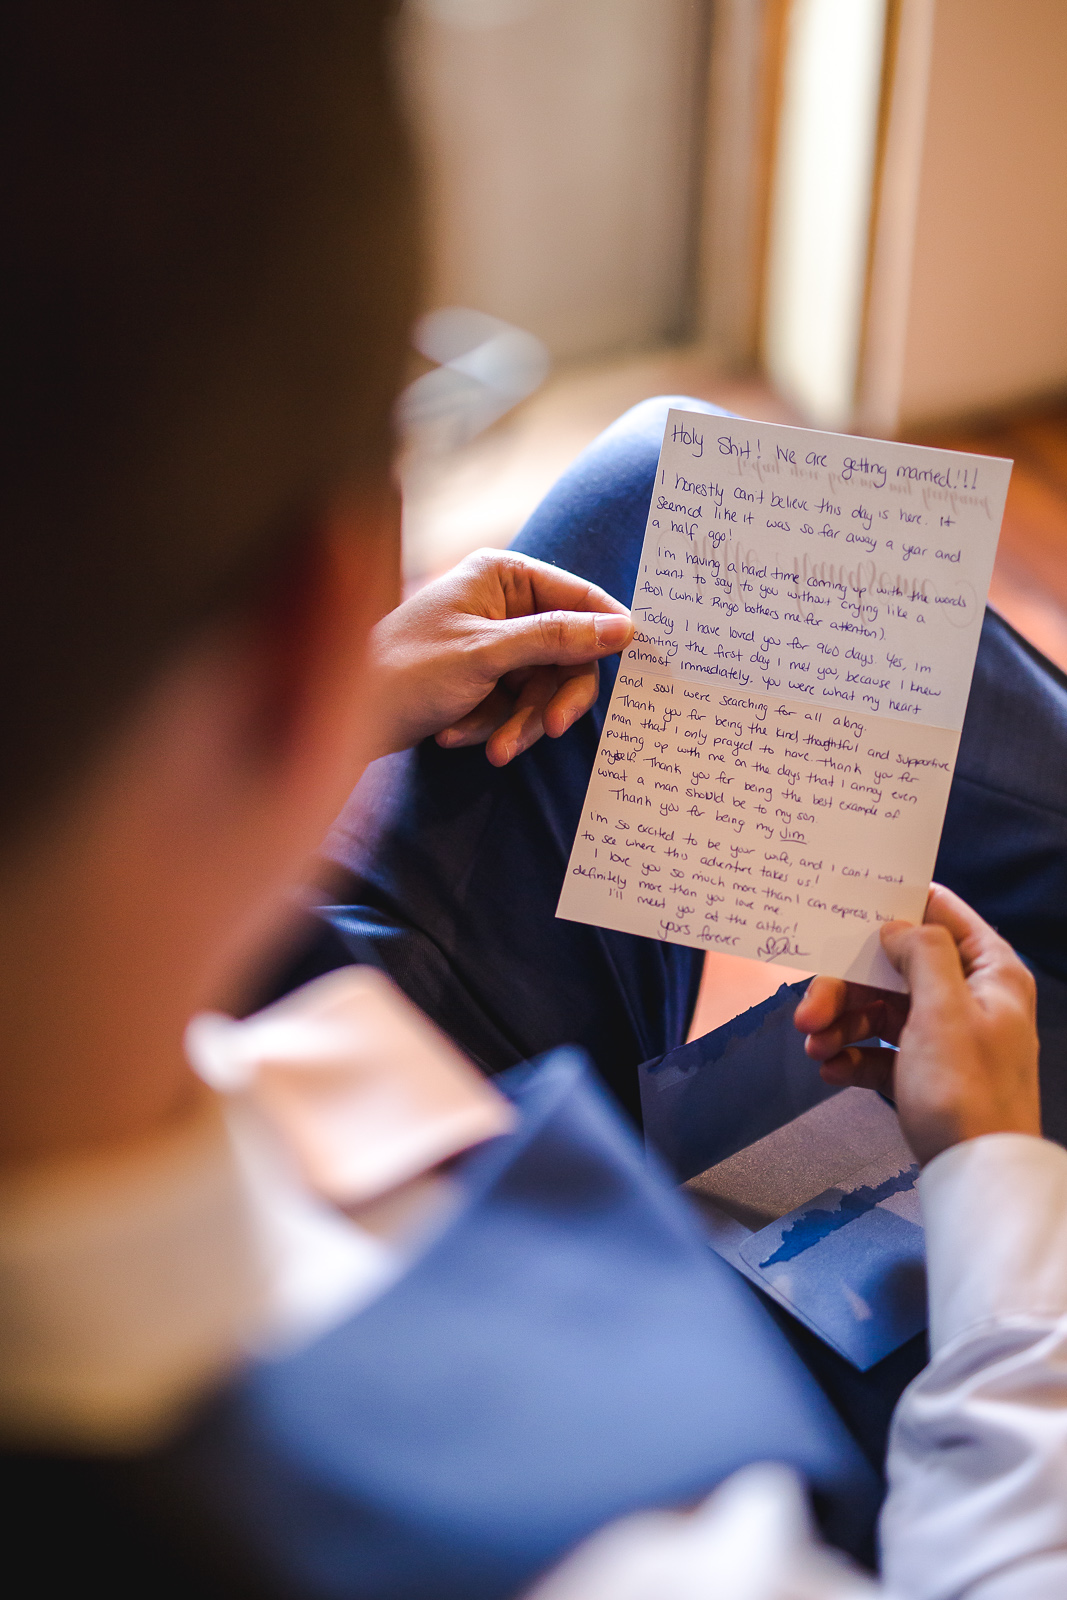 Holy Shit! We are getting married!!!
I honestly can't believe this day is here. It
seemed like it was so far away a year and
a half ago!
I'm having a hard time coming up with the words
I want to say to you without crying like a
fool (while Ringo bothers me for attention).
Today I have loved you for 960 days. Yes, I'm
counting the first day I met you, because I knew
almost immediately. You were what my heart
and soul were searching for all along.
Thank you for being the kind, thoughtful and supportive
man that I only prayed to have. Thank you for
putting up with me on the days that I annoy even
myself. Thank you for being the best example of
what a man should be to my son.
Thank you for being my Jim
I'm so excited to be your wife, and I can't wait
to see where this adventure takes us!
I love you so much more than I can express, but
definitely more than you love me.
I'll meet you at the altar!
yours forever